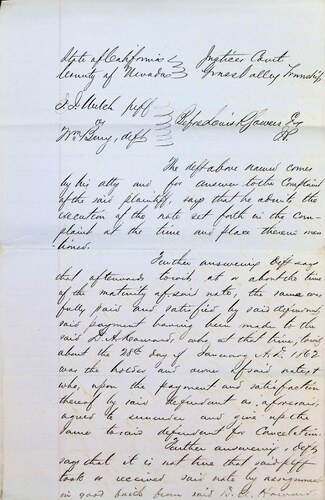 State of California } Justices Court
County of Nevada } Grass Valley Township
J. J. Mulch plff
vs
Wm. Berry, deft } Before Louis R. Sowers Esq
J.P.
The deft above named comes
by his atty and for answer to the Complaint
of the said plaintiff, says that he admits the
execution of the note set forth in the Com-
plaint at the time and place therein men-
tioned.
Further answering Deft says
that afterwards towit, at or about the time
of the maturity of said note, the same was
fully paid and satisfied by said defendant,
said payment having been made to the
said L. A. who, at that time, towit
about the 28th day of January A.D. 1862
was the holder and owner of said note, &
who, upon the payment and satisfaction
thereof by said defendant as aforesaid
agreed to surrender and give up the
same to said defendant for Cancelation.
Further answering, deft
say that it is not true that said plff
took or received said note by assignment
in good faith from said